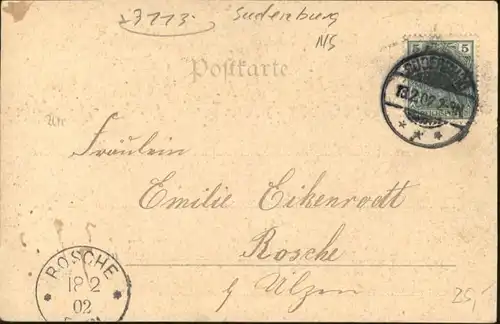 27113. Sudenburg
NS
5 5
Postkarte
SUDERBURG
18.2.02
An
Fräulein
Emilie Eikenrodt
Rosche
b/ Ülzen
* ROSCHE *
18 2
02
25,-